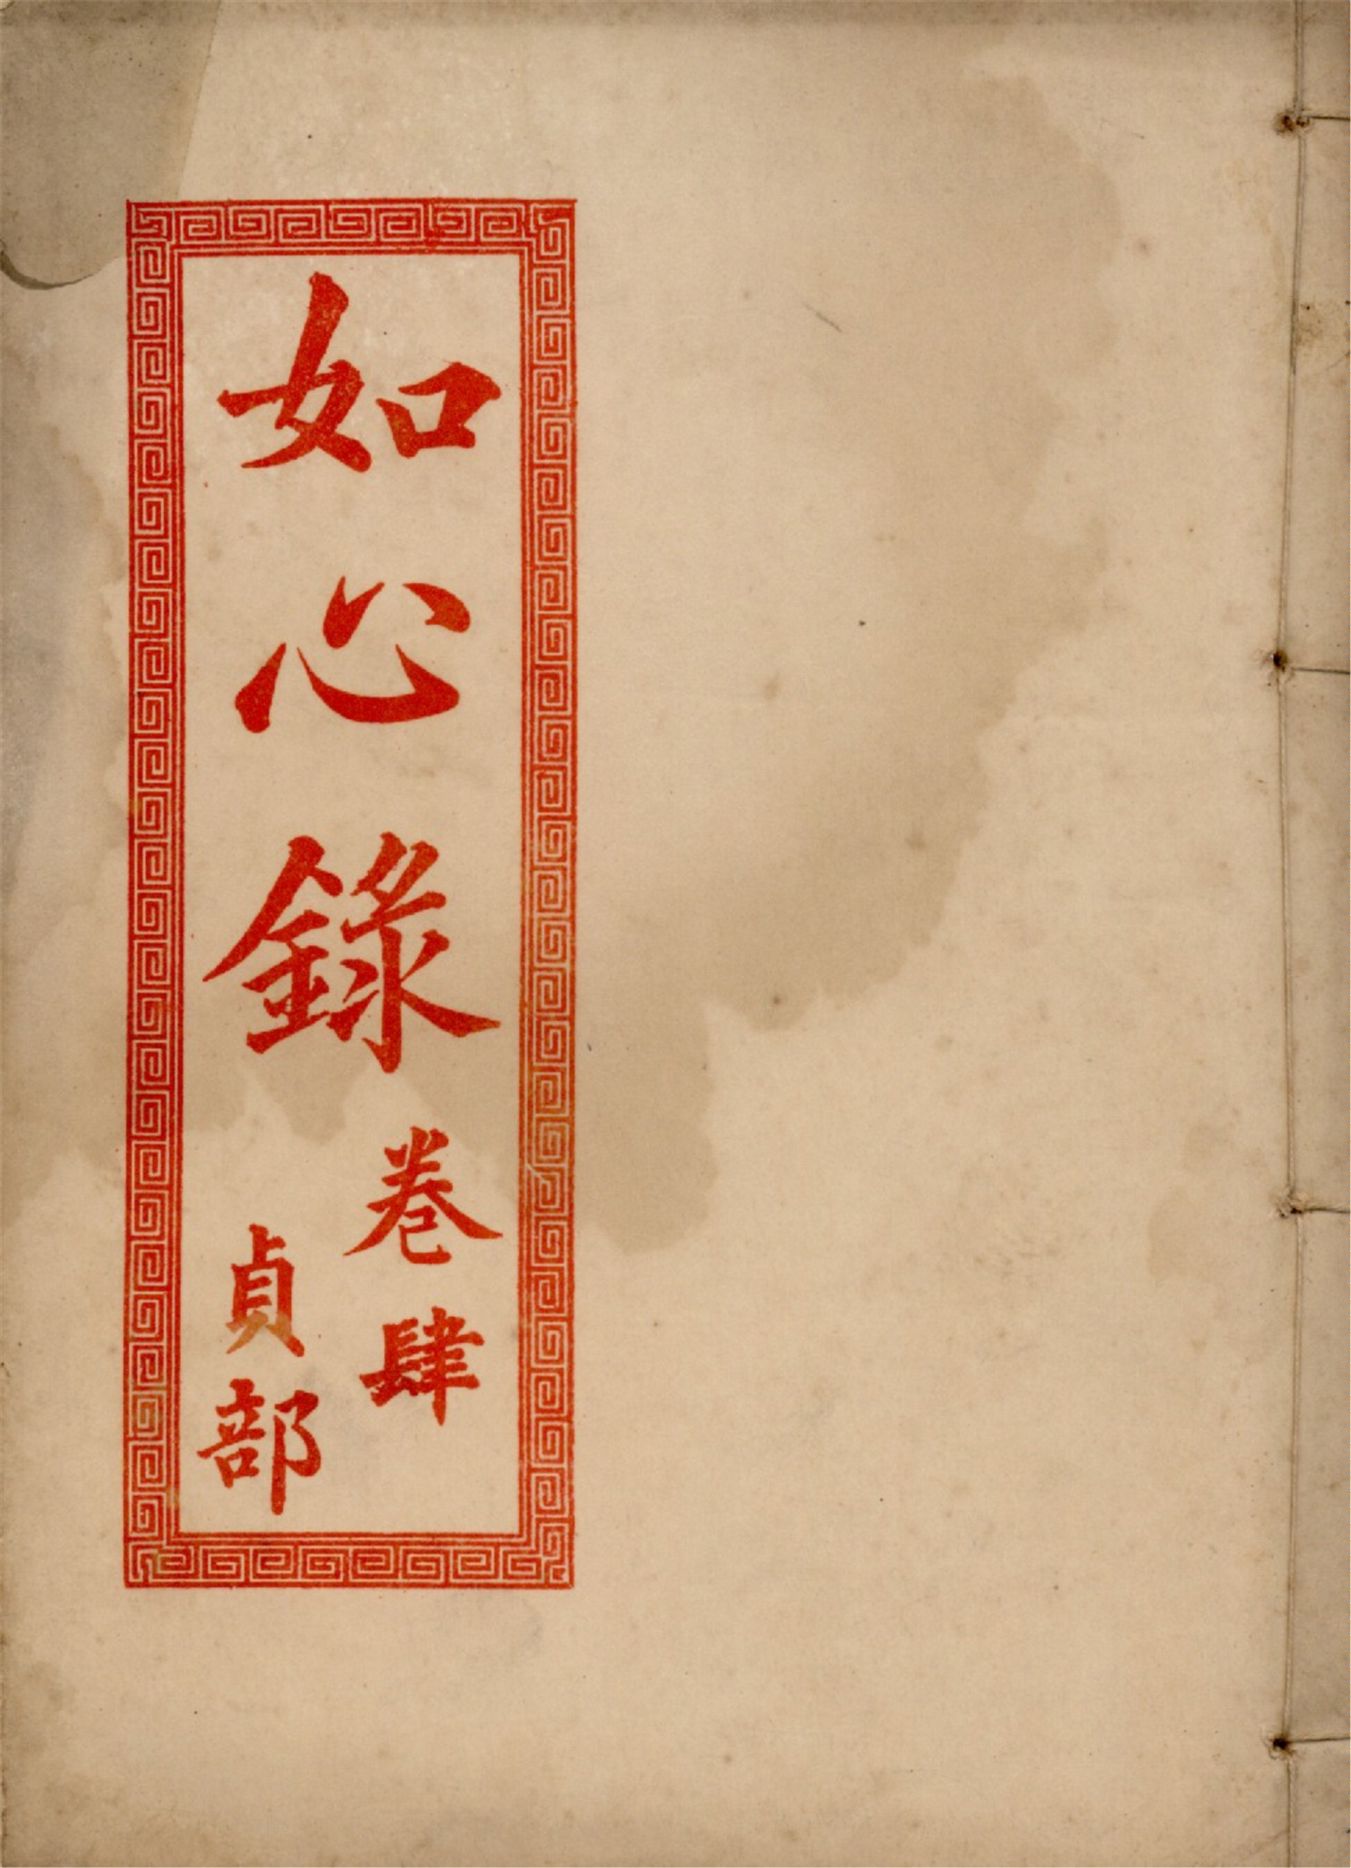 如心錄
卷肆
貞部